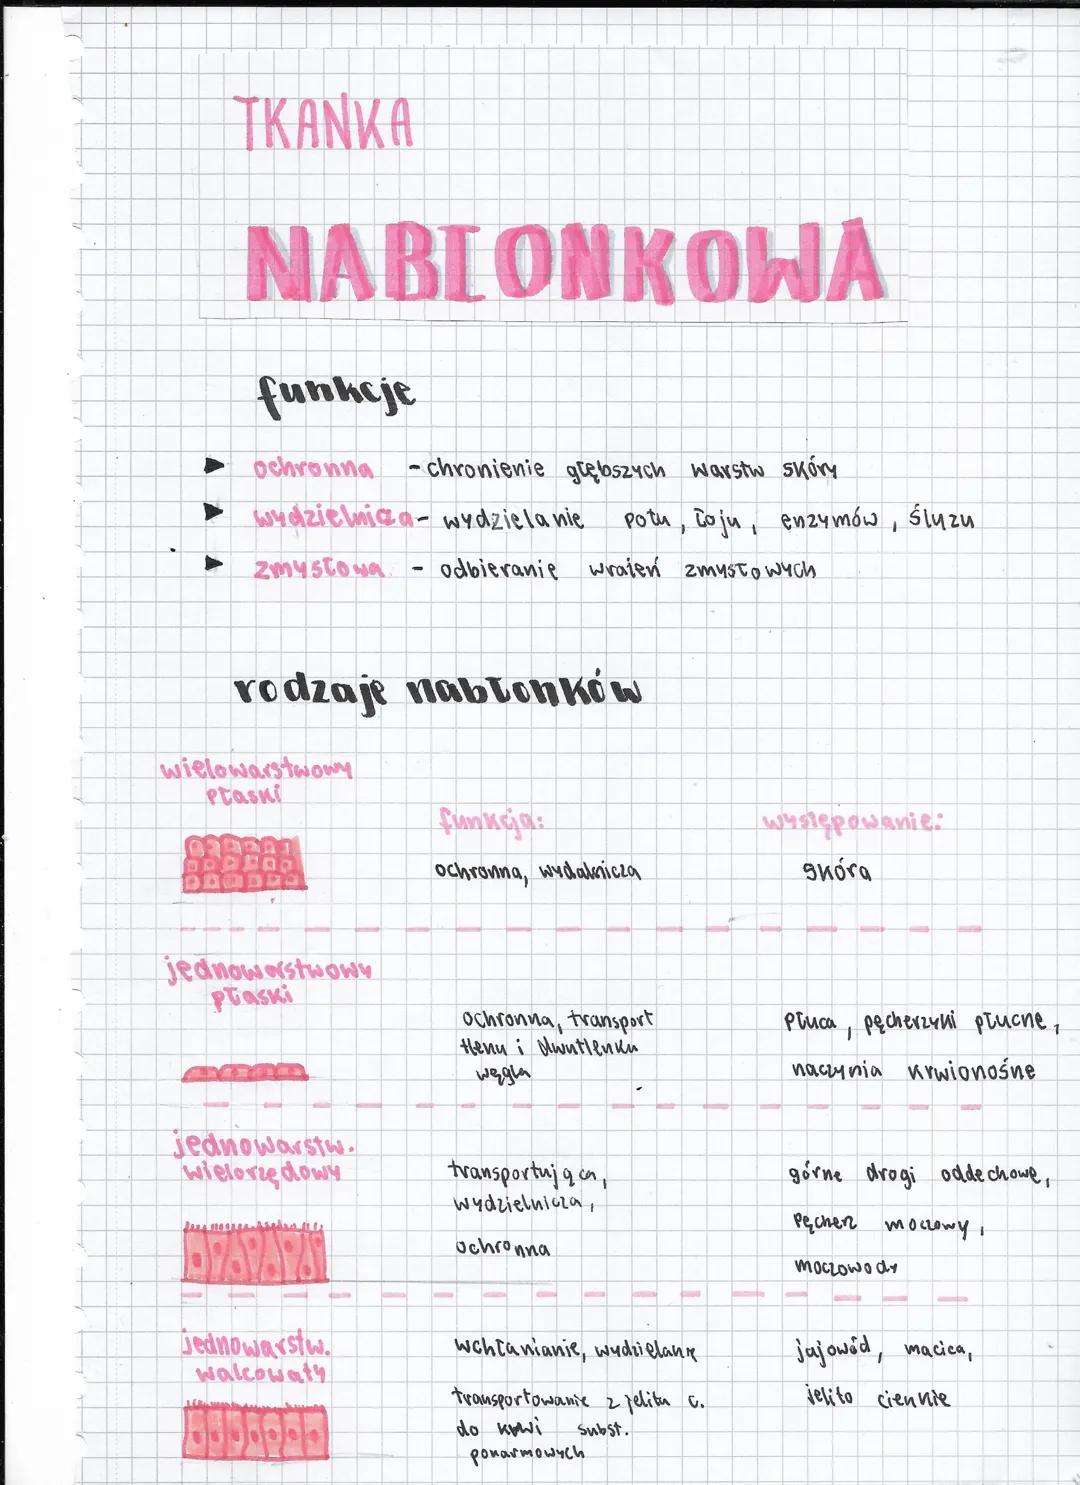 TKANKA
NABŁONKOWA
funkcje
ochronna - chronienie głębszych warstw skóry
wydzielnicza - wydzielanie potu, łoju, enzymów, śluzu
zmysłowa - odbieranie wrażeń zmysłowych
rodzaje nabłonków
wielowarstwowy
płaski
funkcja: występowanie:
ochronna, wydalnicza skóra
jednowarstwowy
płaski
ochronna, transport płuca, pęcherzyki płucne,
tlenu i dwutlenku
węgla naczynia krwionośne
jednowarstw.
wielorzędowy
transportująca, górne drogi oddechowe,
wydzielnicza,
pęcherz moczowy,
ochronna
moczowody
jednowarstw.
walcowaty
wchłanianie, wydzielanie jajowód, macica,
transportowanie z jelita c. jelito cienkie
do krwi subst.
pokarmowych